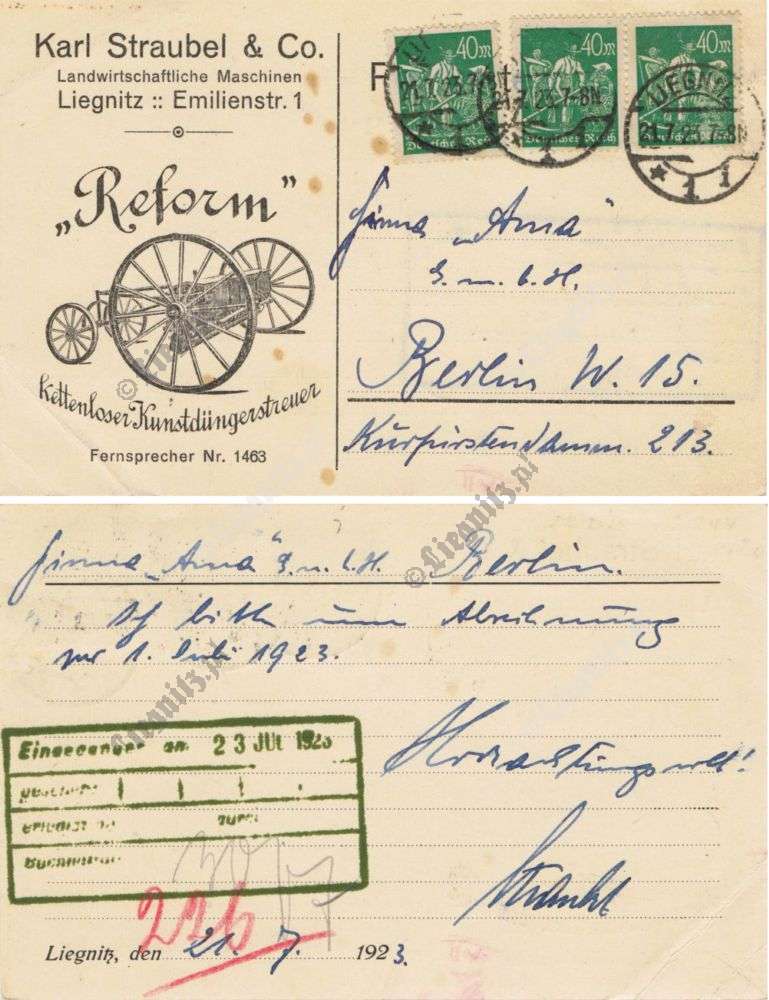 Karl Straubel & Co.
Landwirtschaftliche Maschinen
Liegnitz :: Emilienstr. 1
„Reform"
Kettenloser Kunstdüngerstreuer
Fernsprecher Nr. 1463
40 m
40 m
40 m
Deutsches Reich
Deutsches Reich
Deutsches Reich
21.7.23.7-8N
LIEGNITZ
21.7.23.7-8N
* 1 i
Firma „Ama"
G.m.b.H.
Berlin W. 15.
Kurfürstendamm. 213.
© Liegnitz.pl
Firma „Ama" G.m.b.H. Berlin.
Ich bitte um Abrechnung
per 1. Juli 1923.
Hochachtungsvoll!
Eingegangen am 23 JUL 1923
Erledigt
226
30/7
Liegnitz, den 21. 7. 1923.
© Liegnitz.pl
Liegnitz.pl